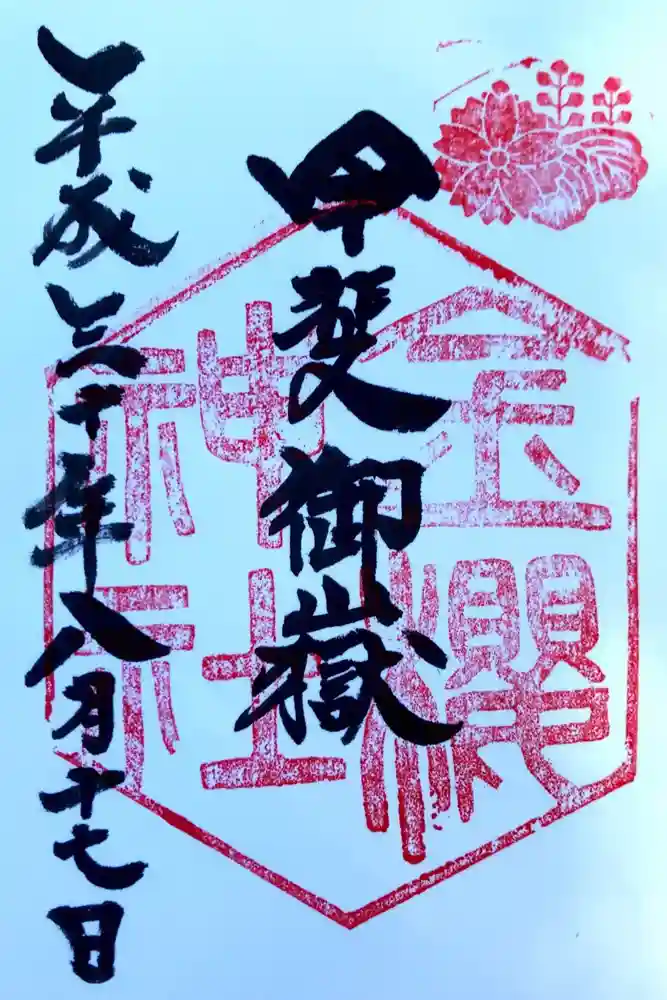 甲斐御嶽
金櫻
神社
平成三十年八月十七日